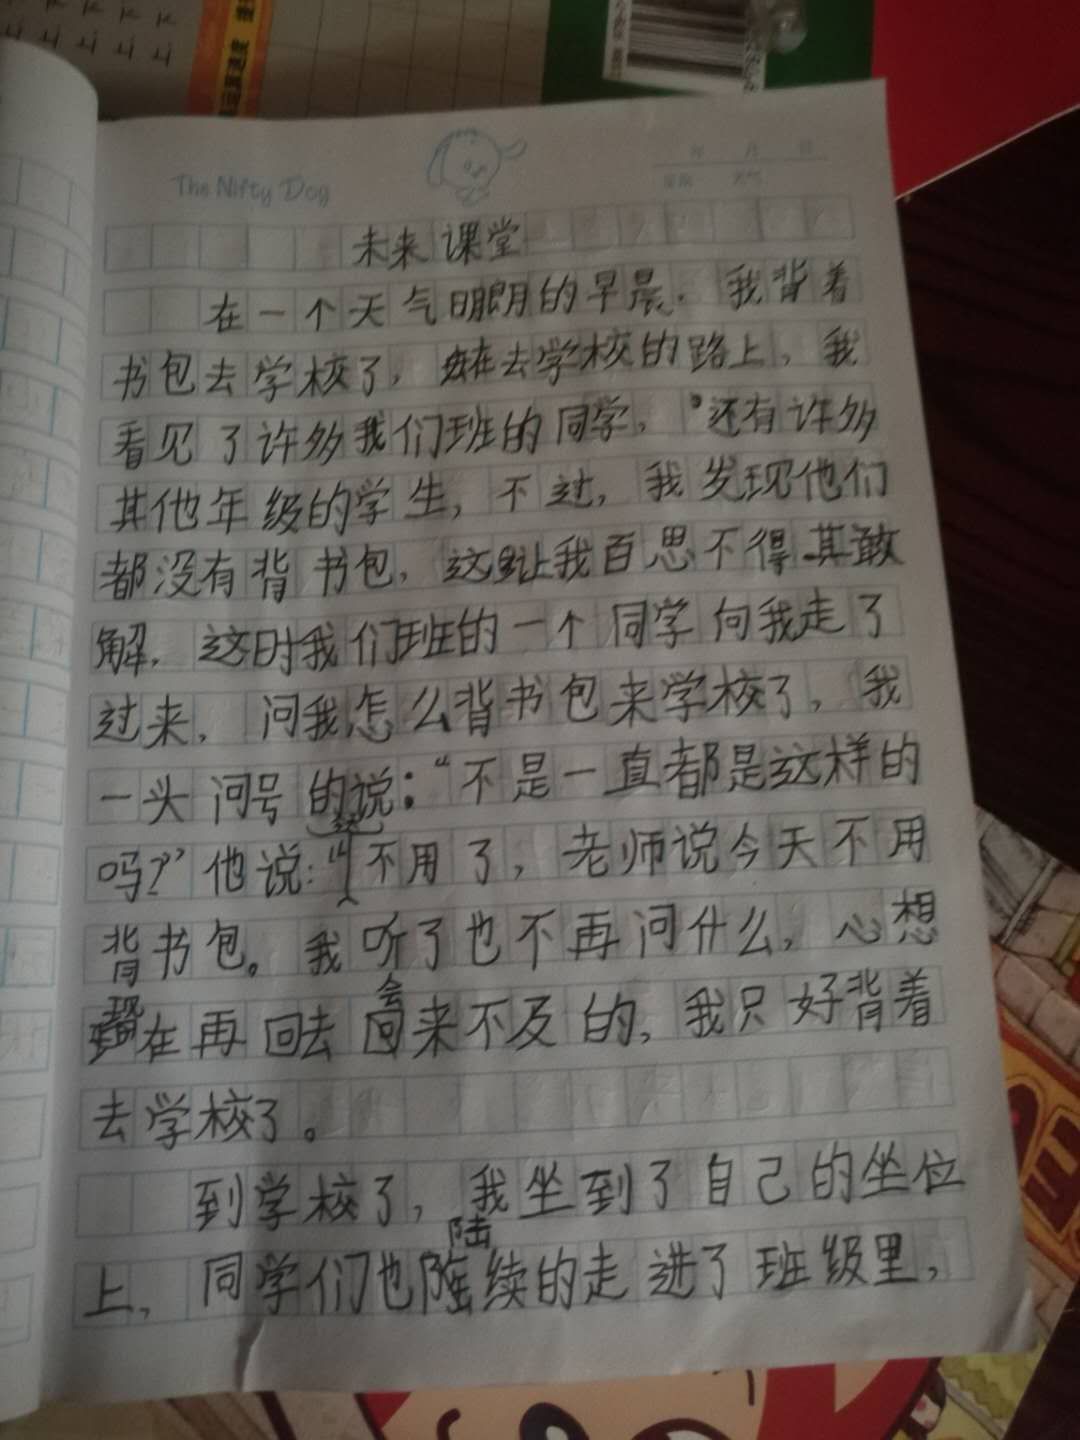 The Nifty Dog
年 月 日
星期 天气
未来课堂
在一个天气明朗的早晨，我背着
书包去学校了，在去学校的路上，我
看见了许多我们班的同学，还有许多
其他年级的学生，不过，我发现他们
都没有背书包，这让我百思不得其
解，这时我们班的一个同学向我走了
过来，问我怎么背书包来学校了，我
一头问号的说：“不是一直都是这样的
吗？”他说：“不用了，老师说今天不用
背书包。我听了也不再问什么，心想
现在再回去会来不及的，我只好背着
去学校了。
到学校了，我坐到了自己的坐位
上，同学们也陆续的走进了班级里，